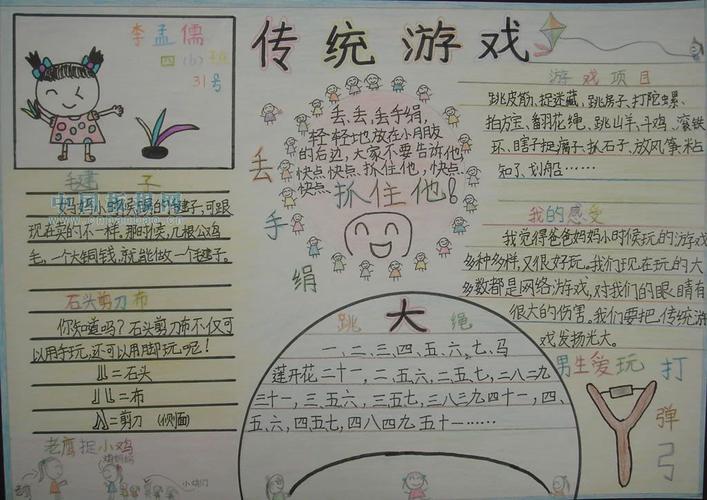 传统游戏
李孟儒
四(6)班
31号
毽子
妈妈小时候踢的毽子,可跟
现在买的不一样。那时候,几根公鸡
毛,一个大铜钱,就能做一个毽子。
石头剪刀布
你知道吗?石头剪刀布不仅可
以用手玩,还可以用脚玩呢!
=石头
=布
=剪刀 (侧面)
老鹰捉小鸡
丢手绢
丢、丢、丢手绢,
轻轻地放在小朋友
的右边,大家不要告诉他,
快点快点抓住他,快点
快点
抓住他!
跳大绳
一、二、三、四、五、六、七、马
莲开花二十一,二、五六,二五七,二八二九
三十一,三、五六,三五七,三八三九四十一,四、
五、六,四五七,四八四九五十一……
游戏项目
跳皮筋、捉迷藏、跳房子、打陀螺、
拍方宝、翻花绳、跳山羊、斗鸡、滚铁
环、瞎子捉瘸子、抓石子、放风筝、粘
知了、划船……
我的感受
我觉得爸爸妈妈小时候玩的游戏
多种多样,又很好玩。我们现在玩的大
多数都是网络游戏,对我们的眼睛有
很大的伤害。我们要把传统游
戏发扬光大。
男生爱玩
打弹弓